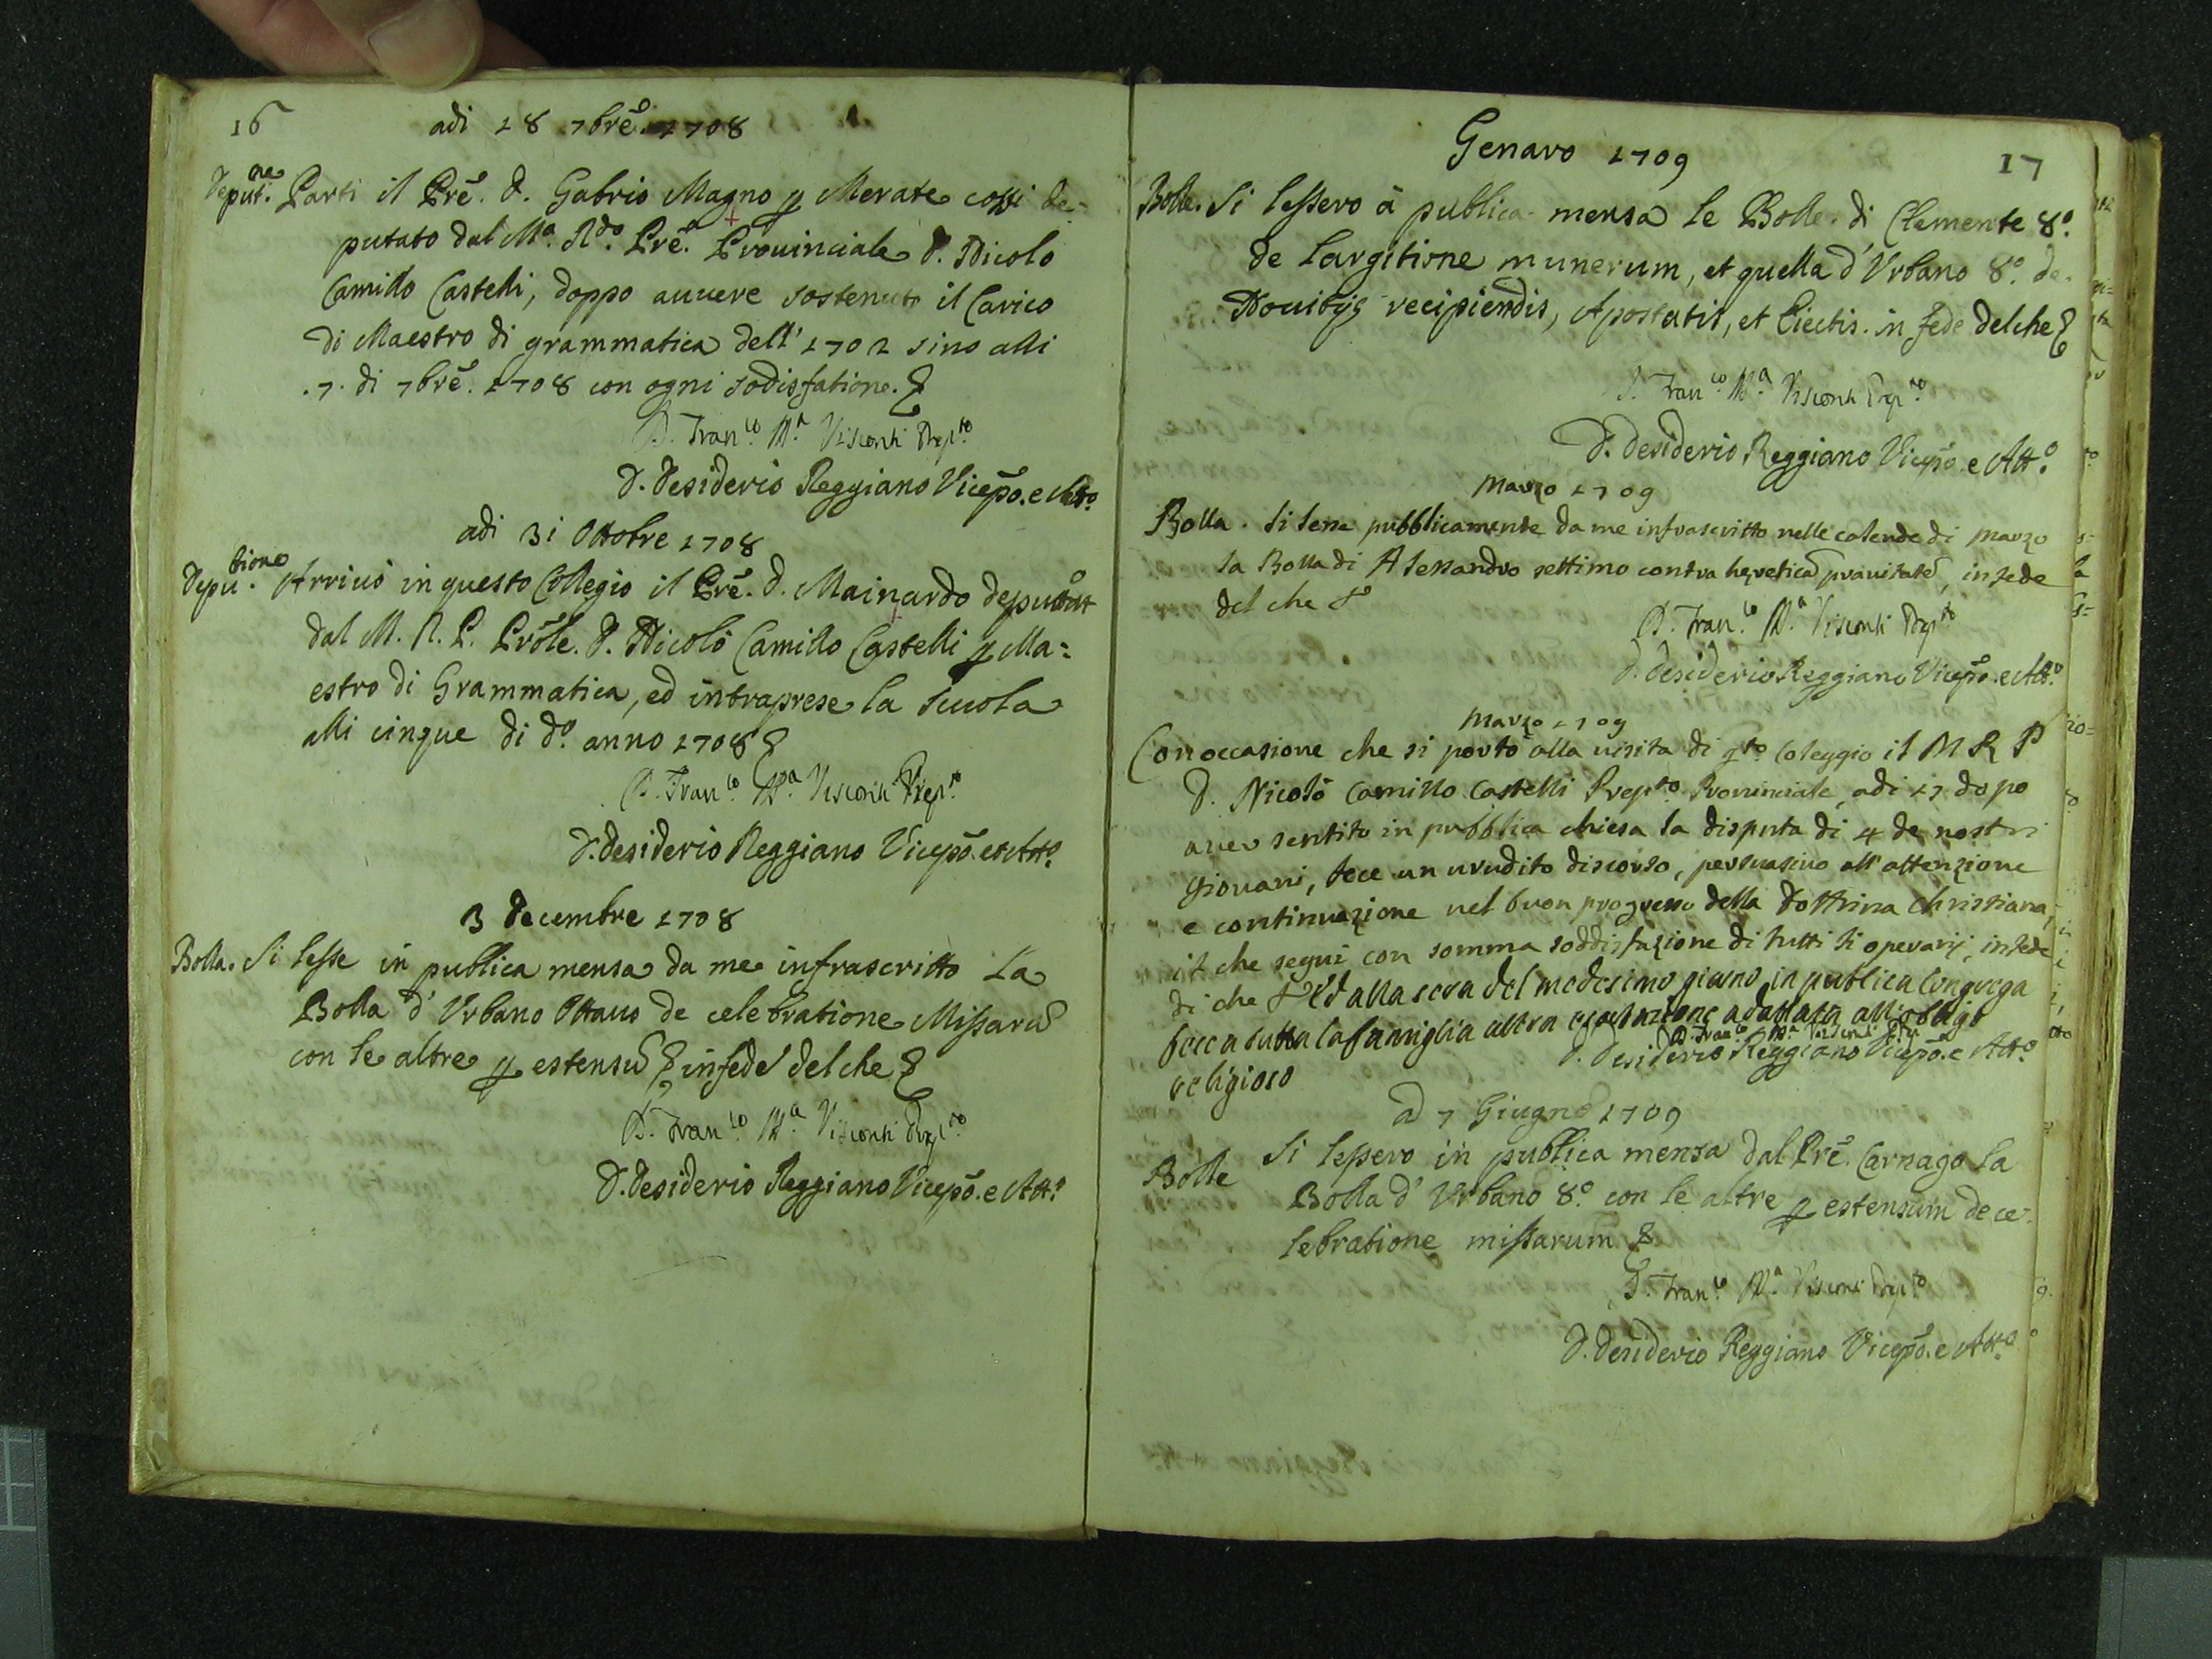 16
adi 18 7brē. 1708
Deput.ne Parti il Prē. D. Gabrio Magno p Merate cossi de-
putato dal M.a R.do Prē. Prouinciale D. Nicolo
Camillo Castelli, doppo auuere sostenuto il Carico
di Maestro di grammatica dell' 1702 sino alli
.7. di 7brē. 1708 con ogni sodisfatione. &
D. Fran.co M.a Visconti Prep.to
D. Desiderio Reggiano Vicepō. e Att.o
adi 31 Ottobre 1708
Depu.tione Arriuò in questo Collegio il Prē. D. Mainardo deputato
dal M. R. P. Prōle. D. Nicolò Camillo Castelli p Ma=
estro di Grammatica, ed intraprese la scuola
alli cinque di d.o anno 1708 &
D. Fran.co M.a Visconti Prep.to
D. Desiderio Reggiano Vicepō. e Att.o
3 Decembre 1708
Bolla. Si lesse in publica mensa da me infrascritto La
Bolla d' Vrbano Ottauo de celebratione Missarū
con le altre p estensū & in fede del che &
D. Fran.co M.a Visconti Prep.to
D. Desiderio Reggiano Vicepō. e Att.o
Genaro 1709
17
Bolle. Si lessero à publica mensa le Bolle di Clemente 8.o
de Largitione munerum, et quella d' Vrbano 8.o de
Nouitijs recipiendis, Apostatis, et Eiectis. in fede del che &
D. Fran.co M.a Visconti Prep.to
D. Desiderio Reggiano Vicepō. e Att.o
Marzo 1709
Bolla. Si lesse pubblicamente da me infrascritto nelle calende di marzo
la Bolla di Alessandro settimo contra hereticā prauitatē, in fede
del che &
D. Fran.co M.a Visconti Prep.to
D. Desiderio Reggiano Vicepō. e Att.o
Marzo 1709
Con occasione che si portò alla uisita di q.to Coleggio il M R P
D. Nicolò Camillo Castelli Prep.to Prouinciale, adi 17 dopo
auer sentito in pubblica chiesa la disputa di 4 de nostri
giouani, fece un urudito discorso, persuasiuo all' attenzione
e continuazione nel buon progresso della Dottrina Christiana,
il che seguì con somma soddisfazione di tutti li operarij, in fede
di che & Ed alla sera del medesimo giorno in publica Congrega
fece a tutta la famiglia altra esortazione adattata all' obligo
religioso
D. Fran.co M.a Visconti
D. Desiderio Reggiano Vicepō. e Att.o
ad 7 Giugno 1709
Bolle Si lessero in publica mensa dal Prē. Carnago la
Bolla d' Vrbano 8.o con le altre p estensum de ce-
lebratione missarum &
D. Fran.co M.a Visconti Prep.to
D. Desiderio Reggiano Vicepō. e Att.o